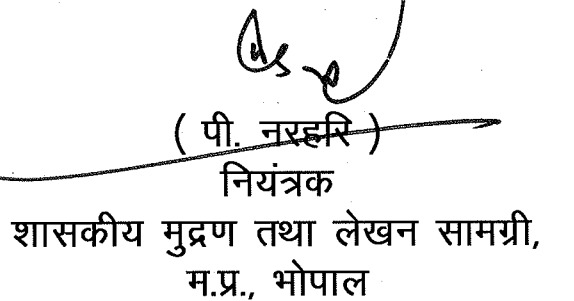 ( पी. नरहरि )
नियंत्रक
शासकीय मुद्रण तथा लेखन सामग्री,
म.प्र., भोपाल